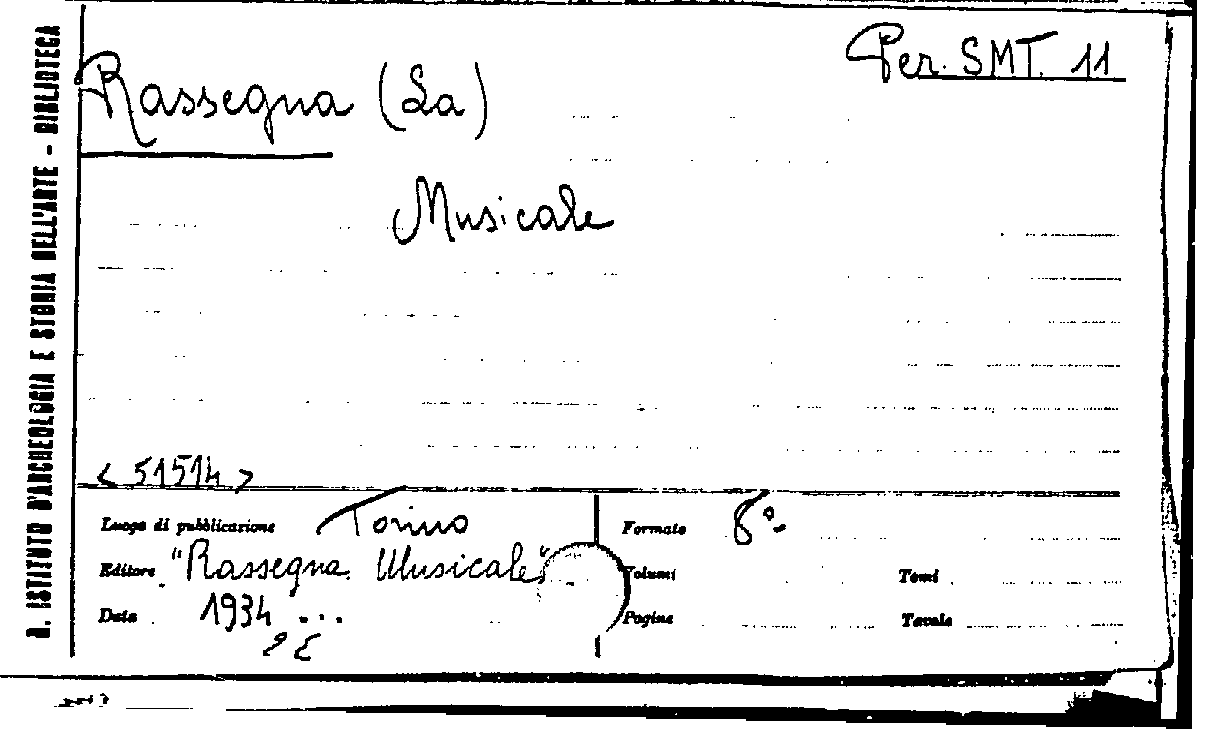 R. ISTITUTO D'ARCHEOLOGIA E STORIA DELL'ARTE - BIBLIOTECA
Per. SMT. 11
Rassegna (La)
Musicale
< 51514 >
Luogo di pubblicazione Torino
Formato 8º
Editore "Rassegna Musicale"
Volumi
Tomi
Data 1934 ...
Pagine
Tavole